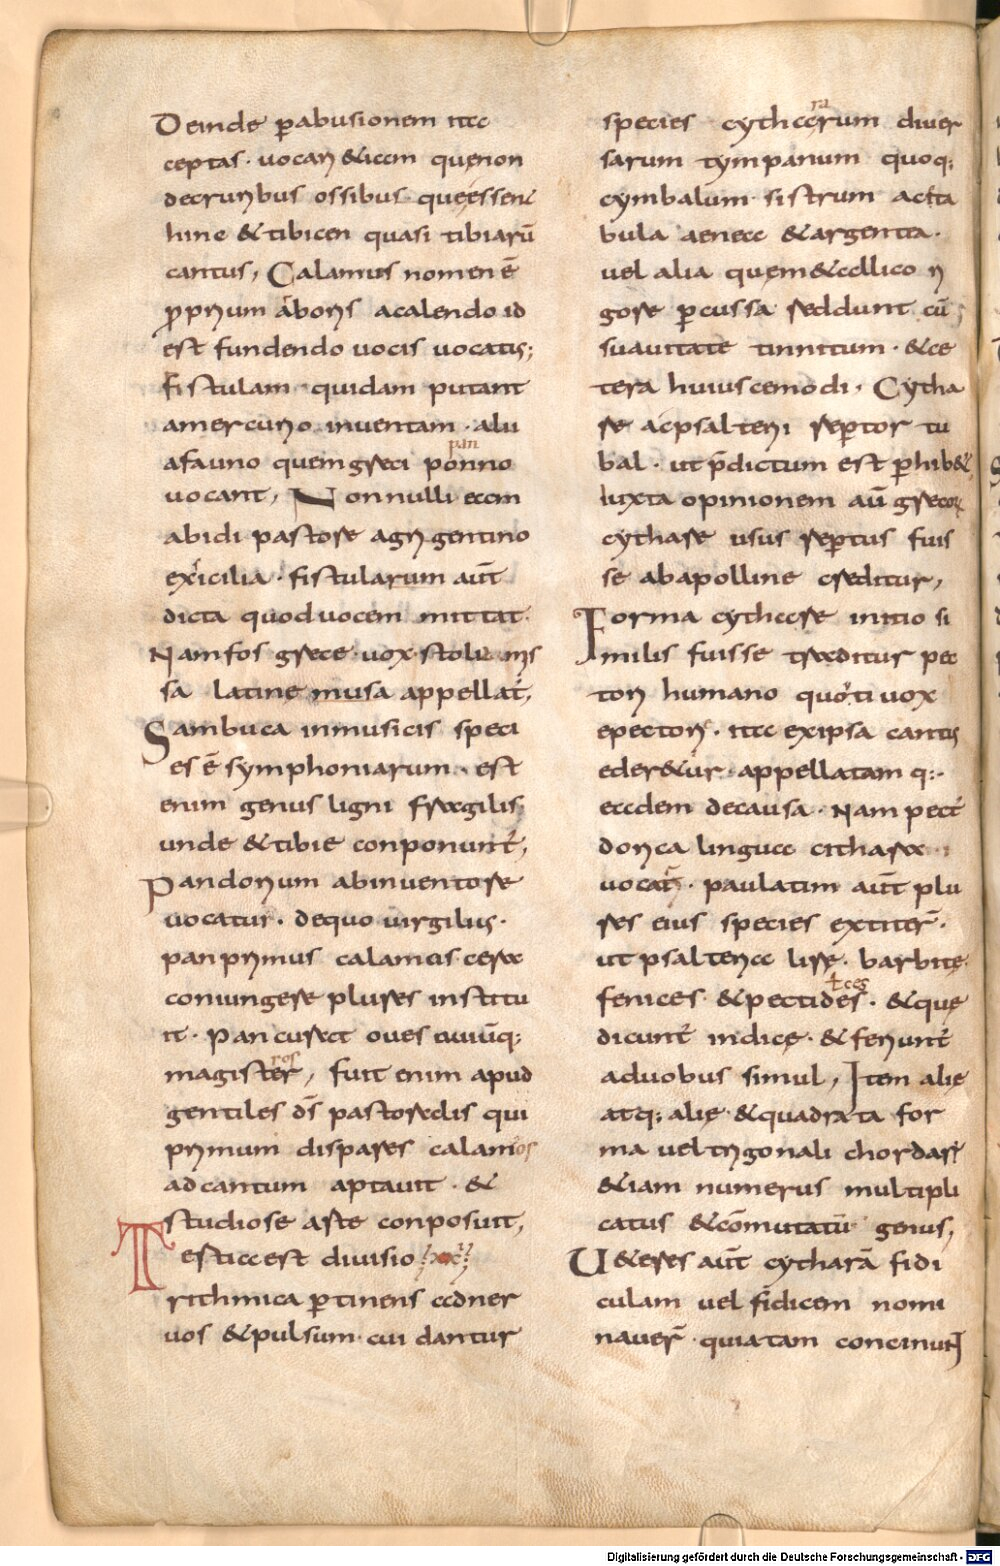 Deinde pabusionem itcc
ceptas · uocari &iccm quenon
decruribus ossibus queessent
hinc & tibicen quasi tibiarū
cantus, Calamus nomen ē
proprium arboris acalendo id
est fundendo uocis uocatis;
fistulam · quidam putant
amercurio inuentam · alii
afauno quem greci ponno
pan
uocant, Nonnulli eccm
abidi pastore agrigentino
exicilia · fistularum aūt
dicta quod uocem mittat ·
Nam fos grece · uox · stolia mis
sa latine musa appellat,
Sambuca inmusicis speci
es ē symphoniarum · est
enim genus ligni fragilis
unde & tibie conponunt,
Pandorium abinuentore
uocatur · dequo uirgilius ·
pan primus calamos cera
coniungere plures institu
it · Pan curat oues ouiūq;
magister, fuit enim apud
ros
gentiles ds pastoralis qui
primum dispares calamos
ad cantum aptauit · &
studiose arte conposuit,
Tertia est diuisio
rithmica p̄tinens adner
uos & pulsum · cui dantur
species cythccrum diuer
ra
sarum tympanum quoq;
cymbalum · sistrum acita
bula aenecc & argentea ·
uel alia quem&allico ri
gore percussa reddunt cū
suauitate tinnitum · & ce
tera huiuscemodi, Cytha
re acpsalterii reptor tu
bal · ut p̄dictum est phib&
Iuxta opinionem aū grecoꝝ
cythare usus reptus fuis
se abapolline creditur,
Forma cythare initio si
milis fuisse traditur pec
tori humano quoti uox
epectore · itcc exipsa cantus
eder&ur · appellatam q: ·
eadem decausa · Nam pect
dorica lingucc cithara
uocat · paulatim aūt plu
res eius species extiter̄ ·
ut psaltericc lire · barbite ·
fenices · & pectides · & que
tces
dicunt indice · & feriunt
aduobus simul, Item alie
atq; alie & quadrata for
ma uel trigonali chordar
&iam numerus multipli
catus & cōmutatū genus,
U&eres aūt cytharā fidi
culam uel fidicem nomi
nauer̄ · quia tam concinunt
Digitalisierung gefördert durch die Deutsche Forschungsgemeinschaft - DFG